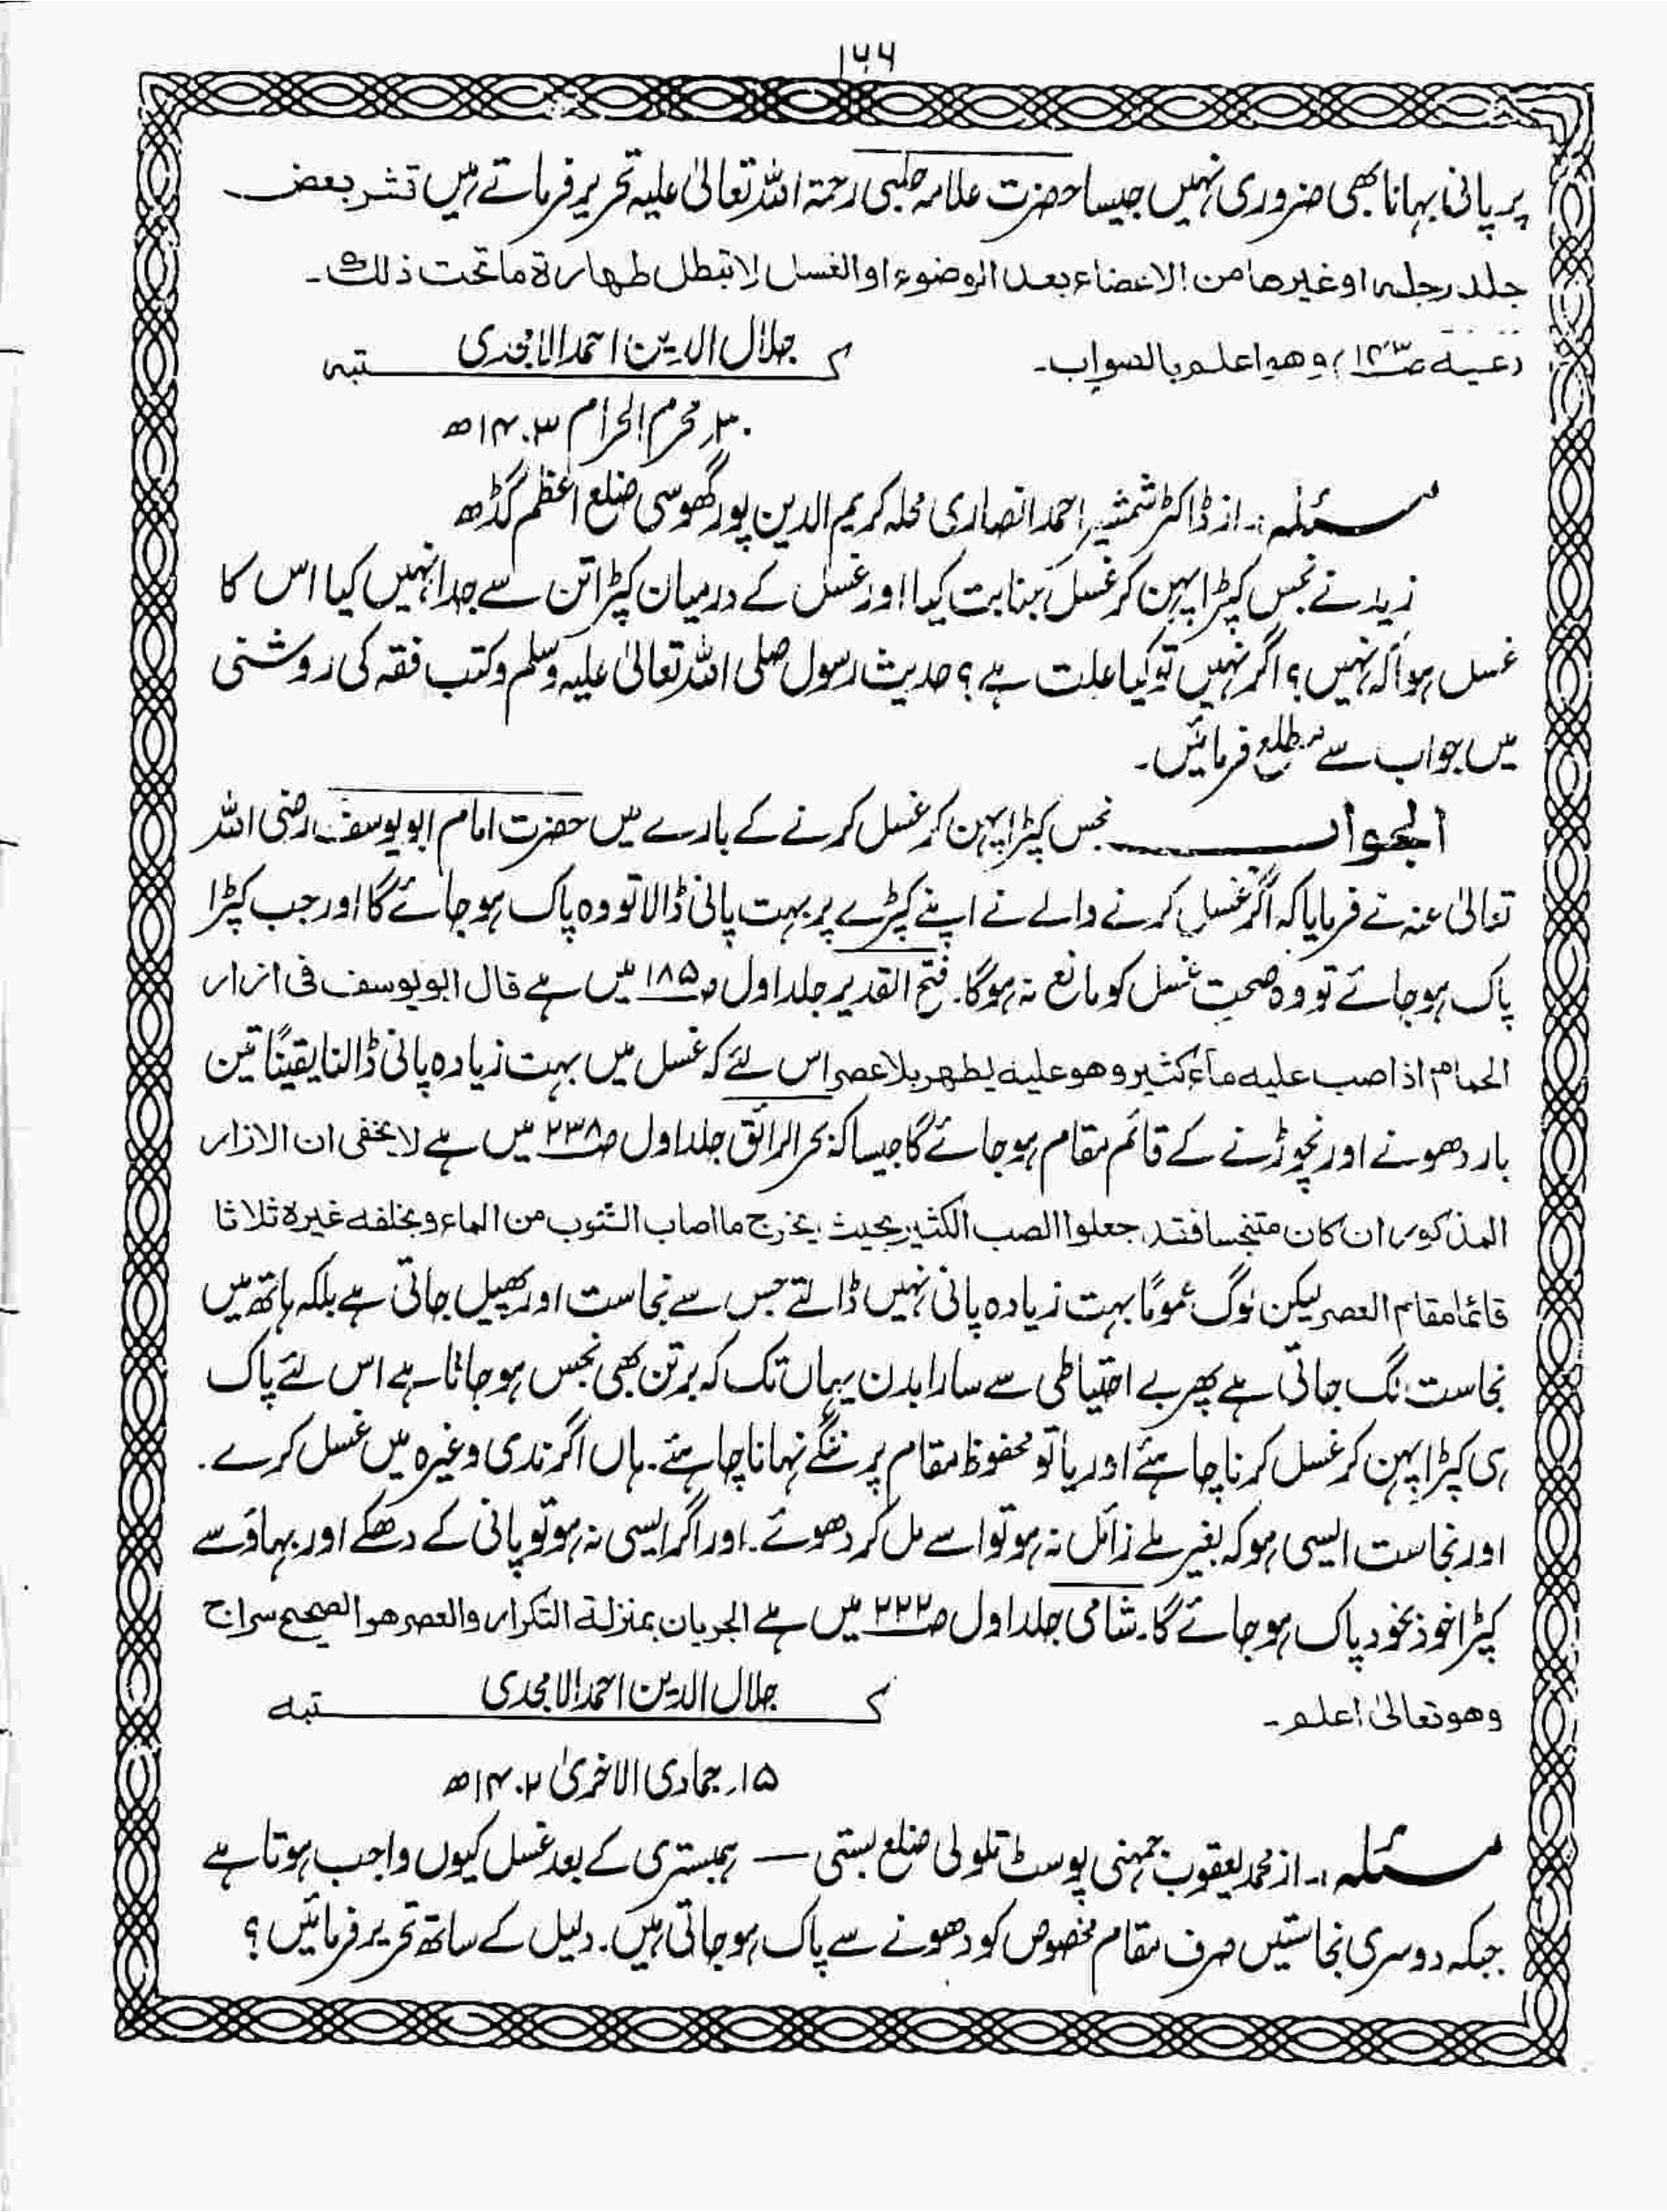 ۱۶۶
پر پانی بہانا بھی ضروری نہیں جیسا حضرت علامہ حلبی رحمۃ اللہ تعالیٰ علیہ تحریر فرماتے ہیں تشر بعض
جلد رجلہ او غیرھا من الاعضاء بعد الوضوء او الغسل لا تبطل طھارۃ ما تحت ذلك۔
(غنیہ ص۱۴۳) وھو اعلم بالصواب۔
کتبہ جلال الدین احمد الامجدی
۳۰؍ محرم الحرام ۱۴۰۳ھ
مسئلہ:۔ از ڈاکٹر شمشیر احمد انصاری محلہ کریم الدین پور گھوسی ضلع اعظم گڈھ
زید نے نجس کپڑا پہن کر غسل جنابت کیا اور غسل کے درمیان کپڑا تن سے جدا نہیں کیا اس کا
غسل ہوا کہ نہیں؟ اگر نہیں تو کیا علت ہے؟ حدیث رسول صلی اللہ تعالیٰ علیہ وسلم و کتب فقہ کی روشنی
میں جواب سے مطلع فرمائیں۔
الجواب نجس کپڑا پہن کر غسل کرنے کے بارے میں حضرت امام ابو یوسف رضی اللہ
تعالیٰ عنہ نے فرمایا کہ اگر غسل کرنے والے نے اپنے کپڑے پر بہت پانی ڈالا تو وہ پاک ہو جائے گا اور جب کپڑا
پاک ہو جائے تو وہ صحت غسل کو مانع نہ ہوگا۔ فتح القدیر جلد اول ص۱۸۵ میں ہے قال ابو یوسف فی ازار
الحمام اذا صب علیہ ماء کثیر وھو علیہ یطھر بلا عصر اس لئے کہ غسل میں بہت زیادہ پانی ڈالنا یقیناً تین
بار دھونے اور نچوڑنے کے قائم مقام ہو جائے گا جیسا کہ بحر الرائق جلد اول ص۲۳۸ میں ہے لا یخفی ان الازار
المذکور ان کان متنجسا فقد جعلوا الصب الکثیر بحیث یخرج ما اصاب الثوب من الماء و یخلفہ غیرہ ثلاثا
قائما مقام العصر لیکن لوگ عموماً بہت زیادہ پانی نہیں ڈالتے جس سے نجاست اور پھیل جاتی ہے بلکہ ہاتھ میں
نجاست لگ جاتی ہے پھر بے احتیاطی سے سارا بدن یہاں تک کہ برتن بھی نجس ہو جاتا ہے اس لئے پاک
ہی کپڑا پہن کر غسل کرنا چاہئے اور یا تو محفوظ مقام پر ننگے نہانا چاہئے۔ ہاں اگر ندی وغیرہ میں غسل کرے۔
اور نجاست ایسی ہو کہ بغیر ملے زائل نہ ہو تو اسے مل کر دھوئے۔ اور اگر ایسی نہ ہو تو پانی کے دھکے اور بہاؤ سے
کپڑا خود بخود پاک ہو جائے گا۔ شامی جلد اول ص۲۲۲ میں ہے الجریان بمنزلۃ التکرار والعصر ھو الصحیح سراج
وھو تعالیٰ اعلم۔
کتبہ جلال الدین احمد الامجدی
۱۵؍ جمادی الاخریٰ ۱۴۰۲ھ
مسئلہ:۔ از محمد یعقوب جمہنی پوسٹ تلولی ضلع بستی — ہمبستری کے بعد غسل کیوں واجب ہوتا ہے
جبکہ دوسری نجاستیں صرف مقام مخصوص کو دھونے سے پاک ہو جاتی ہیں۔ دلیل کے ساتھ تحریر فرمائیں؟